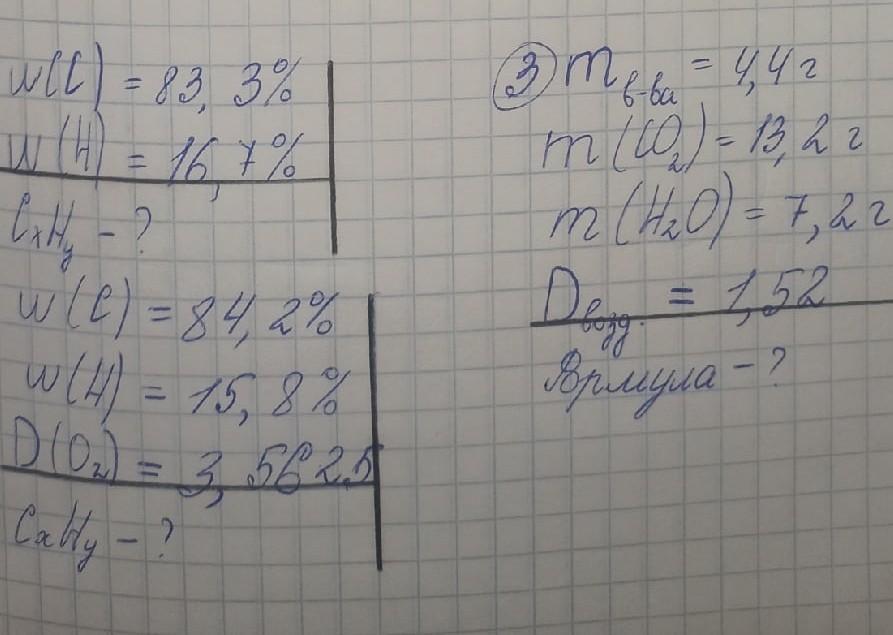 W(C) = 83,3%
W(H) = 16,7%
CxHy - ?
W(C) = 84,2%
W(H) = 15,8%
D(O₂) = 3,5625
CxHy - ?
③ m в-ва = 4,4 г
m(CO₂) = 13,2 г
m(H₂O) = 7,2 г
D возд. = 1,52
Формула - ?